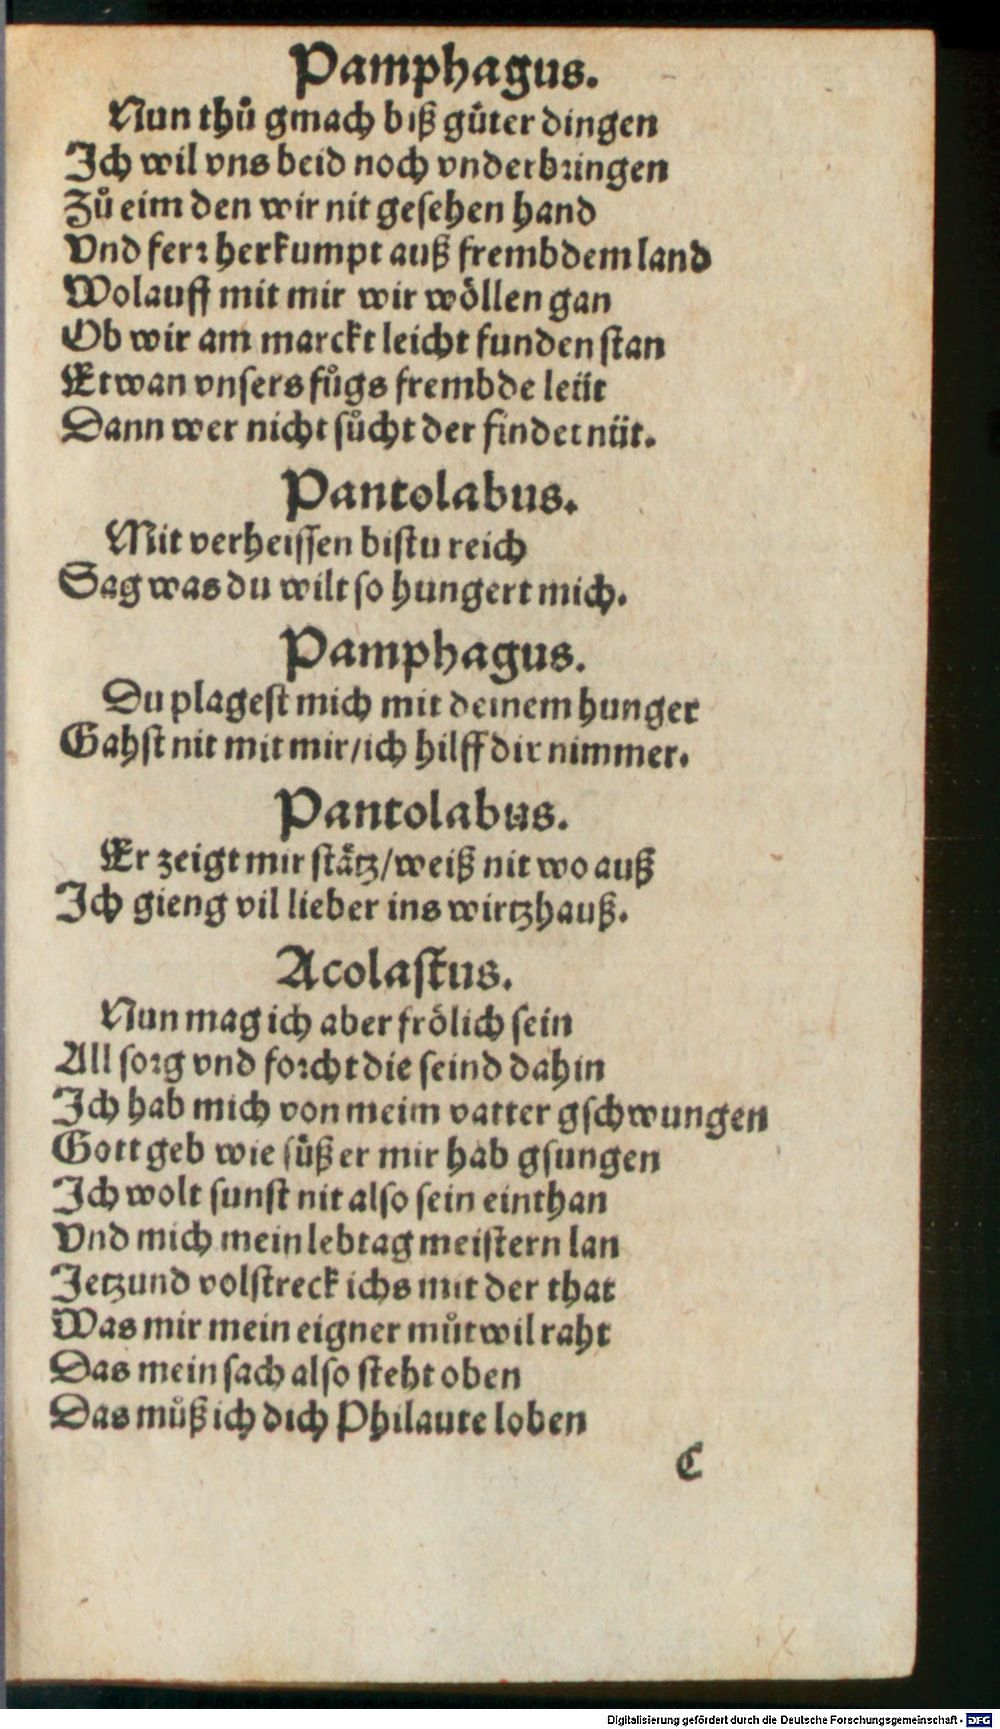 Pamphagus.
Nun thuͦ gmach biß guͦter dingen
Ich wil vns beid noch vnderbringen
Zuͦ eim den wir nit gesehen hand
Vnd ferr herkumpt auß frembdem land
Wolauff mit mir wir wöllen gan
Ob wir am marckt leicht funden stan
Etwan vnsers fuͦgs frembde leüt
Dann wer nicht suͦcht der findet nüt.
Pantolabus.
Mit verheissen bistu reich
Sag was du wilt so hungert mich.
Pamphagus.
Du plagest mich mit deinem hunger
Gahst nit mit mir/ich hilff dir nimmer.
Pantolabus.
Er zeigt mir stätz/weiß nit wo auß
Ich gieng vil lieber ins wirtzhauß.
Acolastus.
Nun mag ich aber frölich sein
All sorg vnd forcht die seind dahin
Ich hab mich von meim vatter gschwungen
Gott geb wie süß er mir hab gsungen
Ich wolt sunst nit also sein einthan
Vnd mich mein lebtag meistern lan
Jetzund volstreck ichs mit der that
Was mir mein eigner muͦtwil raht
Das mein sach also steht oben
Das muͦß ich dich Philaute loben
C
Digitalisierung gefördert durch die Deutsche Forschungsgemeinschaft - DFG